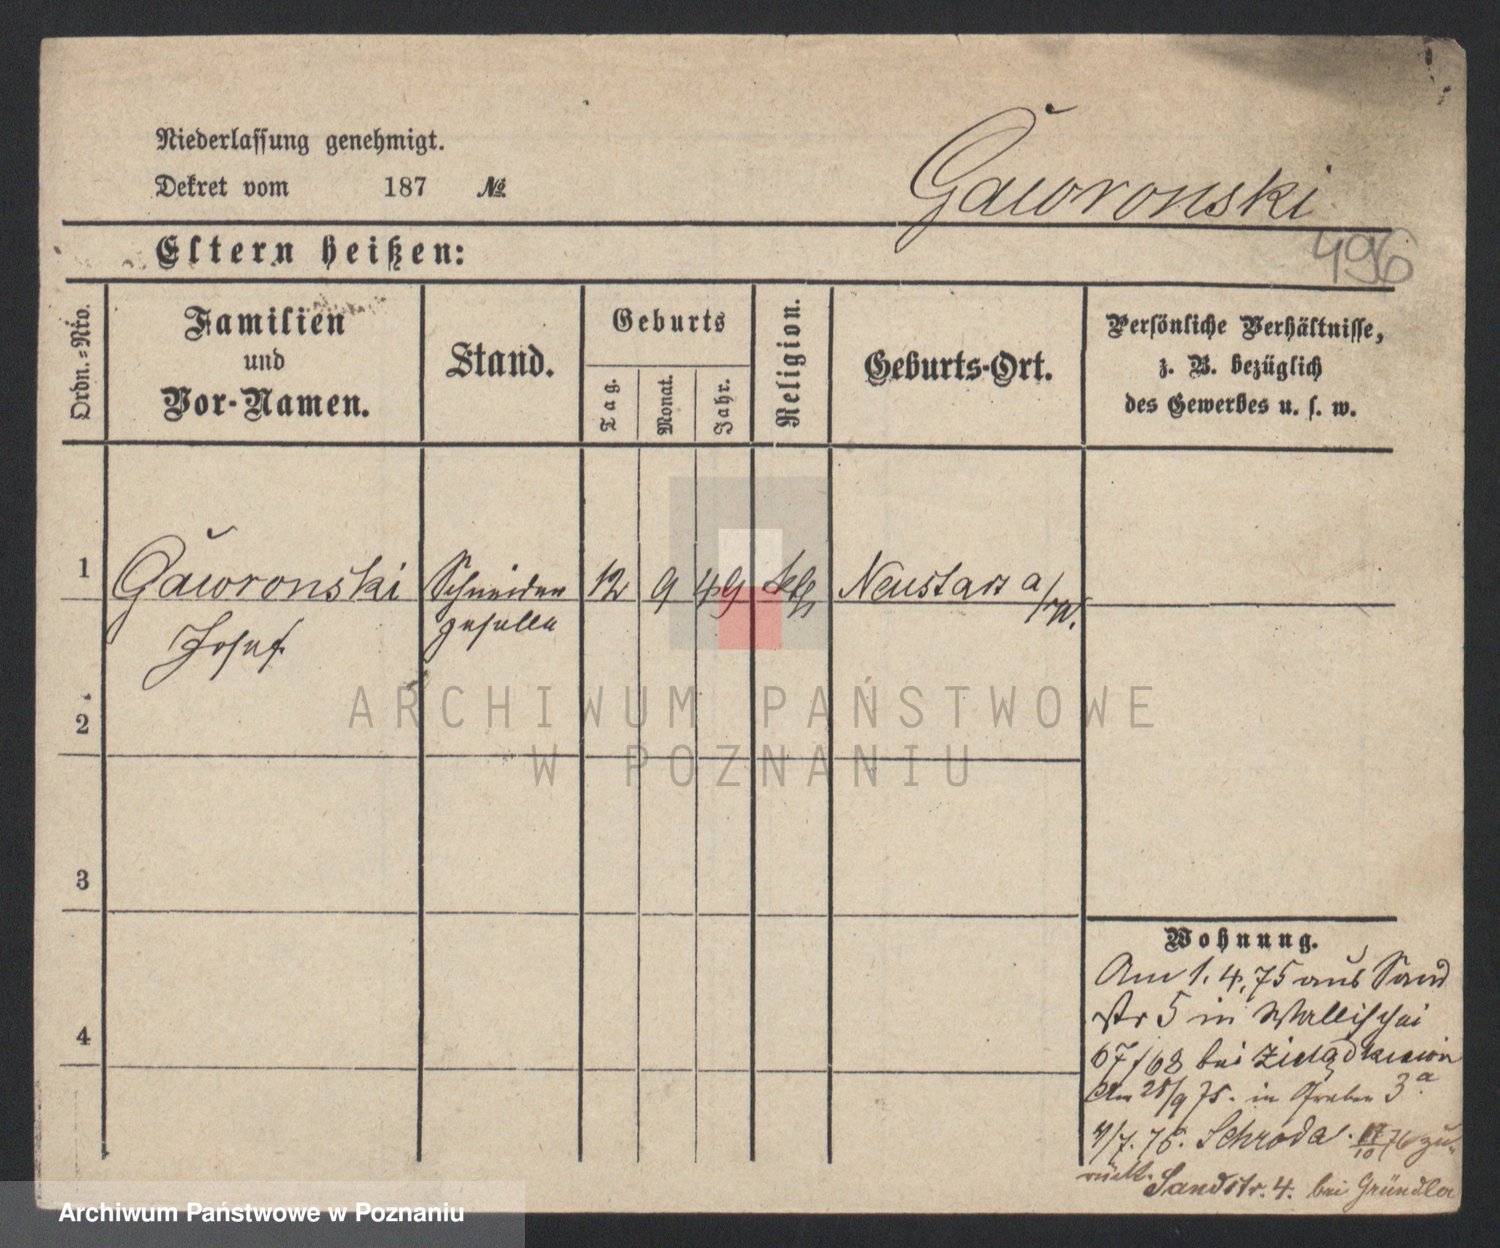 Niederlassung genehmigt.
Dekret vom 187 №
Gaworonski
496
Eltern heißen:
Ordn.=Nro.
Familien
und
Vor-Namen.
Stand.
Geburts
Tag.
Monat.
Jahr.
Religion.
Geburts-Ort.
Persönliche Verhältnisse,
z. B. bezüglich
des Gewerbes u. s. w.
1 Gaworonski Schneider 12 9 49 kth Neustadt a/W.
Josef geselle
2
3
4
Wohnung.
Am 1. 4. 75 aus Sand
str 5 in Wallischei
67/68 bei
Am 28/9 75. in Graben 3a.
4/7. 76. Schroda. 17/10 76 zu-
rück. Sandstr. 4. bei Gründler
ARCHIWUM PAŃSTWOWE
W POZNANIU
Archiwum Państwowe w Poznaniu